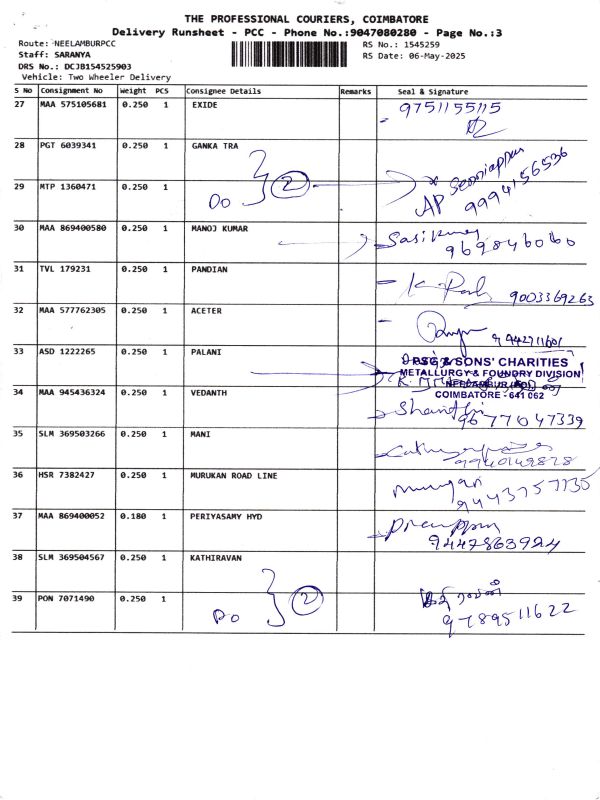 THE PROFESSIONAL COURIERS, COIMBATORE
Delivery Runsheet - PCC - Phone No.:9047080280 - Page No.:3
Route: NEELAMBURPCC
RS No.: 1545259
Staff: SARANYA
RS Date: 06-May-2025
DRS No.: DCJB154525903
Vehicle: Two Wheeler Delivery
S No Consignment No Weight PCS Consignee Details Remarks Seal & Signature
27 MAA 575105681 0.250 1 EXIDE 9751155115
28 PGT 6039341 0.250 1 GANKA TRA
29 MTP 1360471 0.250 1 Do 2 AP 9994156536
30 MAA 869400580 0.250 1 MANOJ KUMAR Sasikumar 9698460060
31 TVL 179231 0.250 1 PANDIAN 9003369263
32 MAA 577762305 0.250 1 ACETER 9942711601
33 ASD 1222265 0.250 1 PALANI PSG & SONS' CHARITIES
METALLURGY & FOUNDRY DIVISION
COIMBATORE - 641 062
34 MAA 945436324 0.250 1 VEDANTH Shanthi 9677047339
35 SLM 369503266 0.250 1 MANI 9940149828
36 HSR 7382427 0.250 1 MURUKAN ROAD LINE Murugan 9443757735
37 MAA 869400052 0.180 1 PERIYASAMY HYD 9447863924
38 SLM 369504567 0.250 1 KATHIRAVAN
39 PON 7071490 0.250 1 Do 2 9789511622